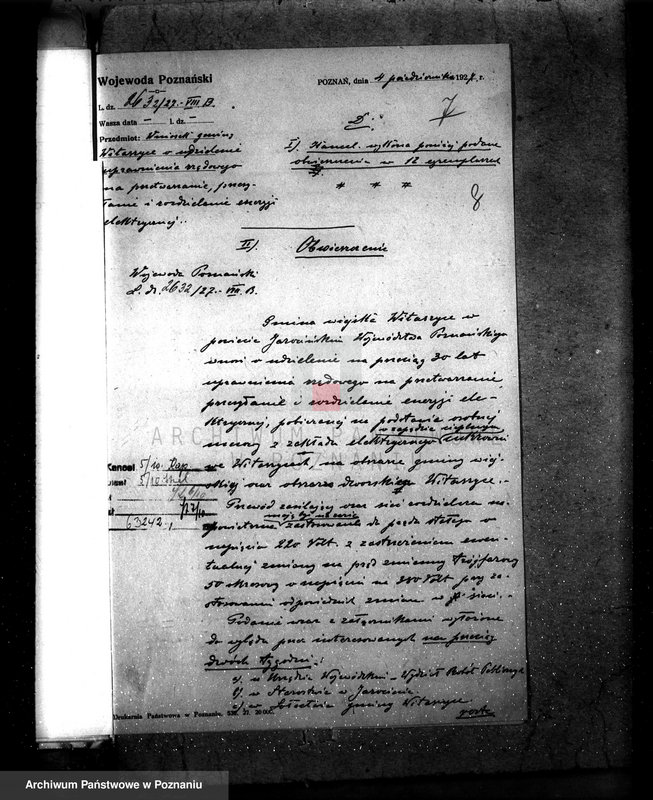 Wojewoda Poznański
L. dz. 2632/27.-VIII B.
Wasza data — l. dz. —
Przedmiot: Wniosek gminy
Witaszyce o udzielenie
uprawnienia rządowego
na przetwarzanie, przesy-
łanie i rozdzielanie energji
elektrycznej.
POZNAŃ, dnia 4 października 1927. r.
7
I). Kancel. wykona poniżej podane
obwieszczenie w 12 egzemplarzach
* * *
8
II). Obwieszczenie
Wojewoda Poznański
L. dz. 2632/27.-VIII. B.
Gmina wiejska Witaszyce w
powiecie Jarocińskim Województwa Poznańskiego
wnosi o udzielenie na przeciąg 30 lat
uprawnienia rządowego na przetwarzanie,
przesyłanie i rozdzielanie energji ele-
ktrycznej, pobieranej na podstawie osobnej
umowy z zakładu elektrycznego cukrowni
w Witaszycach, na obszarze gminy wiej-
skiej oraz obszarze dworskim Witaszyce.
Przewód zasilający oraz sieć rozdzielcza na-
powietrzna mają być na razie zastosowane do prądu stałego o
napięciu 220 Volt. z zastrzeżeniem ewen-
tualnej zmiany na prąd zmienny trójfazowy
50 okresowy o napięciu na 380 Volt przy za-
stosowaniu odpowiednich zmian w sieci.
Podanie wraz z załącznikami wyłożone
do wglądu przez interesowanych na przeciąg
dwóch tygodni:
a). w Urzędzie Wojewódzkim - Wydział Robót Publicznych
b). w Starostwie w Jarocinie
c). w Sołectwie gminy Witaszyce
Kancel. 5/10
63242
Drukarnia Państwowa w Poznaniu. 27. 20 000.
ARCHIWUM PAŃSTWOWE
W POZNANIU
Archiwum Państwowe w Poznaniu